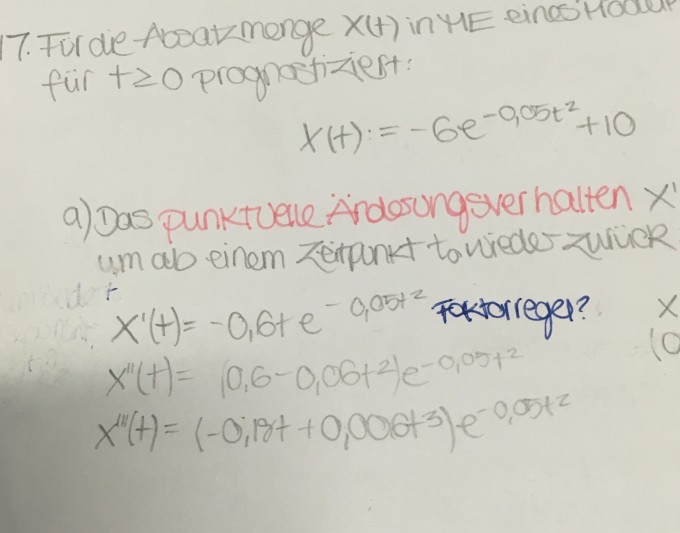 17. Für die Absatzmenge X(t) in ME eines Modul
für t≥0 prognostiziert:
X(t):= -6e^-0,05t² +10
a) Das punktuelle Änderungsverhalten X'
um ab einem Zeitpunkt to wieder zurück
X'(t)= -0,6t e^-0,05t² Faktorregel? X
X''(t)= (0,6-0,06t²)e^-0,05t² (0
X'''(t)= (-0,18t +0,006t³)e^-0,05t²